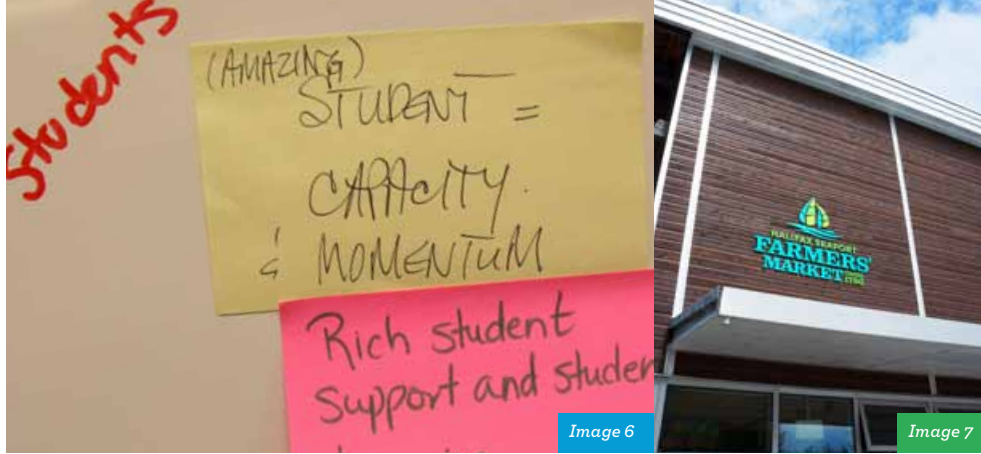 Students
(AMAZING)
STUDENT =
CAPACITY.
& MOMENTUM
Rich student
support and studen
Image 6
HALIFAX SEAPORT
FARMERS'
MARKET
Image 7